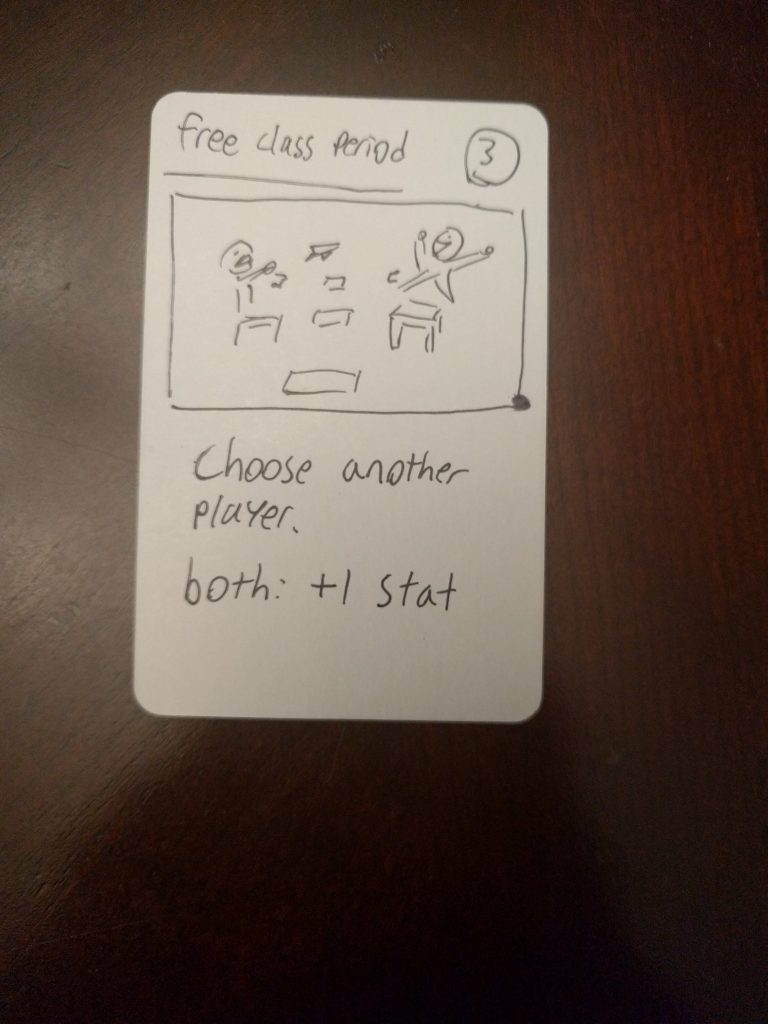 free class period
3
Choose another
player.
both: +1 stat